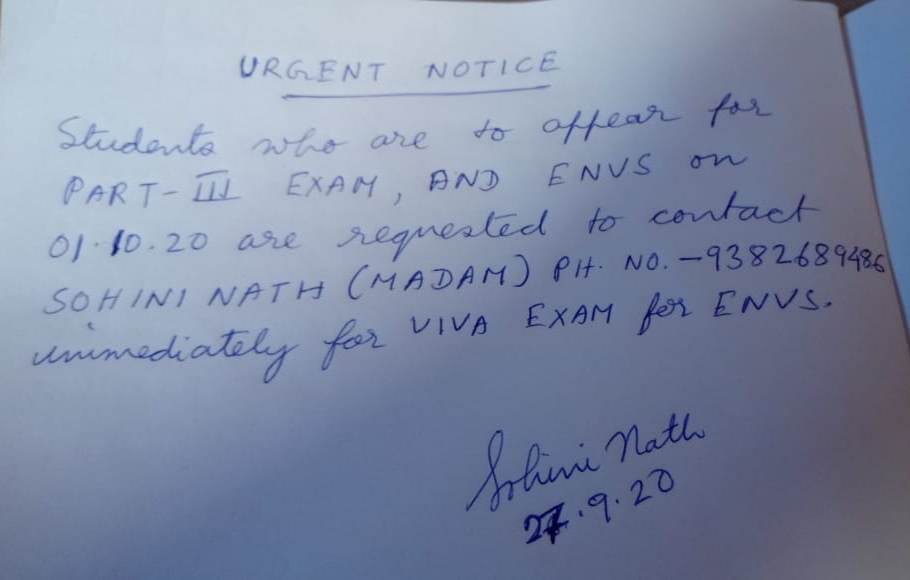 URGENT NOTICE
Students who are to appear for
PART-III EXAM, AND ENVS on
01.10.20 are requested to contact
SOHINI NATH (MADAM) PH. NO. -9382689486
immediately for VIVA EXAM for ENVS.
Sohini Nath
27.9.20